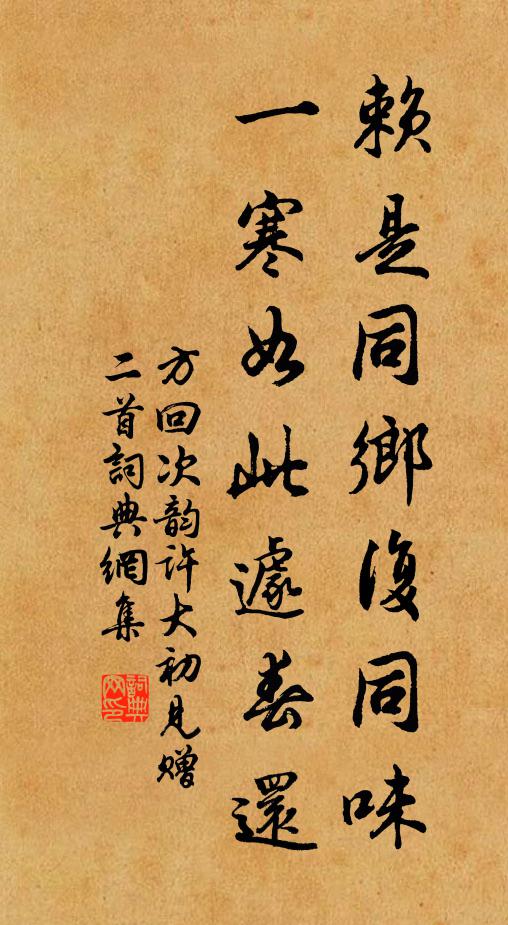 賴是同鄉復同味
一寒如此遽春還
方回次韵許大初見贈
二首詞典網集
詞典
网印